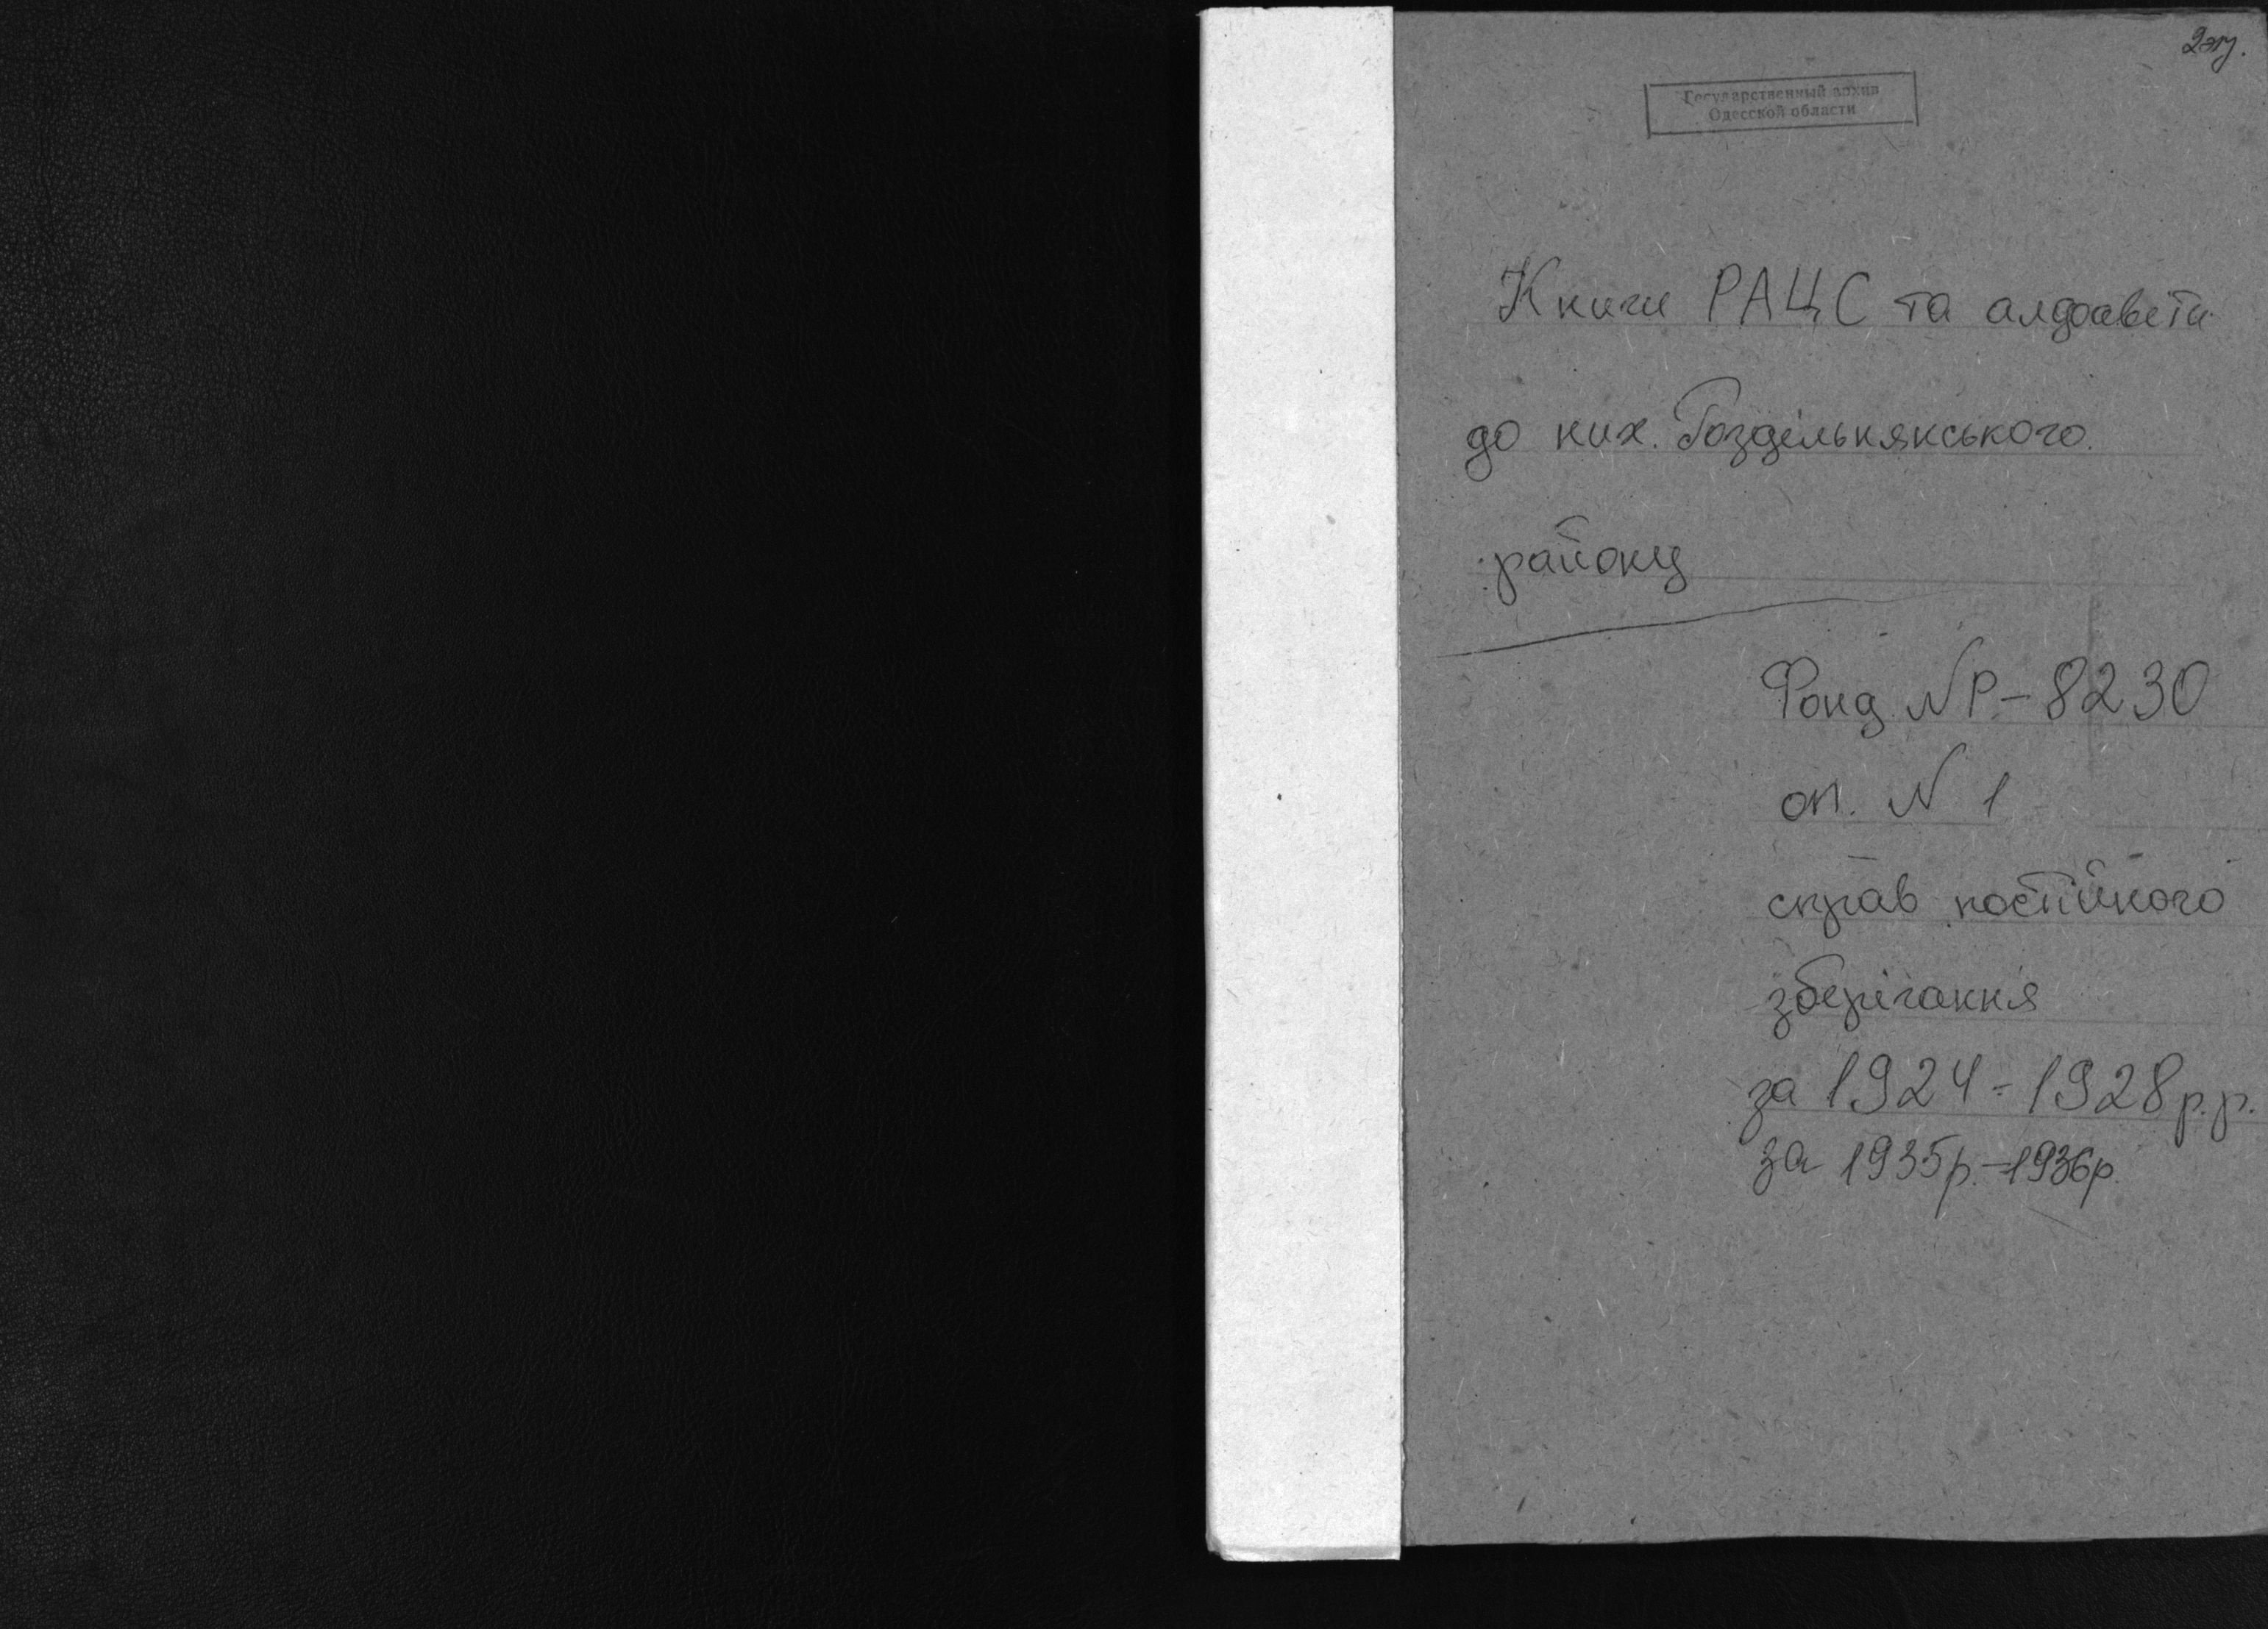 2эт.
Государственный архив
Одесской области
Книги РАЦС та алфавети
до них Роздільнянського
району
Фонд № Р-8230
оп. № 1
справ постійного
зберігання
за 1924-1928 р.р.
за 1935р.-1936р.